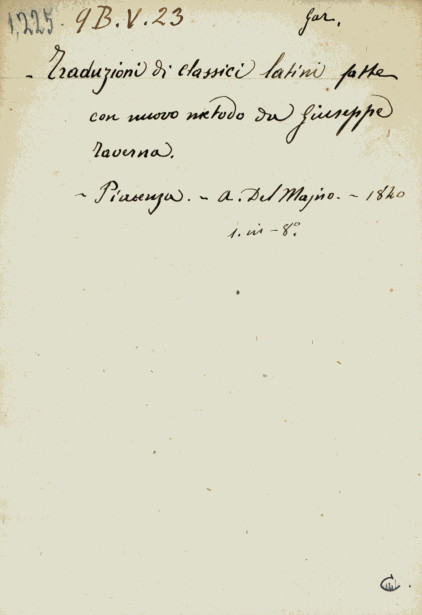 1,225 9 B. V. 23
- Traduzioni di classici latini fatte
con nuovo metodo da Giuseppe
Taverna.
- Piacenza. - A. Del Majno. - 1840
1. in - 8º.